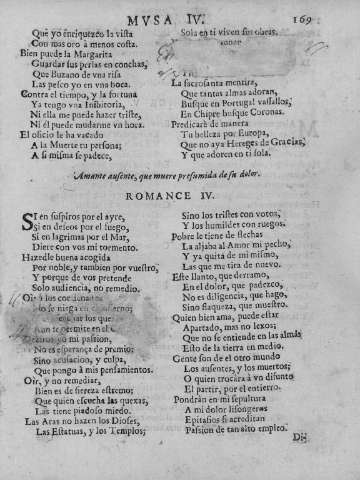 MVSA IV. 169
Que yo enriquezco la vista
Con mas oro à menos costa.
Bien puede la Margarita
Guardar sus perlas en conchas,
Que Buzano de vna risa
Las pesco yo en vna boca.
Contra el tiempo, y la fortuna
Ya tengo vna Inibitoria,
Ni ella me puede hazer triste,
Ni èl puede mudarme vn hora.
El oficio le ha vacado
A la Muerte tu persona;
A si misma se padece,
Sola en ti viven sus obras.
La sacrosanta mentira,
Que tantas almas adoran,
Busque en Portugal vassallos,
En Chipre busque Coronas.
Predicarè de manera
Tu belleza por Europa,
Que no aya Hereges de Gracias,
Y que adoren en ti sola.
Amante ausente, que muere presumido de su dolor.
ROMANCE IV.
SI en suspiros por el ayre,
Si en deseos por el fuego,
Si en lagrimas por el Mar,
Diere con vos mi tormento.
Hazedle buena acogida
Por noble, y tambien por vuestro,
Y porque de vos pretende
Solo audiencia, no remedio.
Oir à los condenados
No se niega en el infierno;
los que
Aun se permite en el
yo mi passion,
No es esperança de premio;
Sino acusacion, y culpa,
Que pongo à mis pensamientos.
Oir, y no remediar,
Bien es de fiereza estremo;
Que quien escucha las quexas,
Las tiene piadoso miedo.
Las Aras no hazen los Dioses,
Las Estatuas, y los Templos;
Sino los tristes con votos,
Y los humildes con ruegos.
Pobre la tiene de flechas
La aljaba al Amor mi pecho,
Y ya quita de mi mismo,
Las que me tira de nuevo.
Este llanto, que derramo,
En el dolor, que padezco,
No es diligencia, que hago,
Sino flaqueza, que muestro.
Quien bien ama, puede estar
Apartado, mas no lexos;
Que no se entiende en las almas
Esto de la tierra en medio.
Gente son de el otro mundo
Los ausentes, y los muertos;
O quien trocara à vn difunto
El partir, por el entierro.
Pondràn en mi sepultura
A mi dolor lisongeros
Epitafios si acreditan
Passion de tan alto empleo.
Di